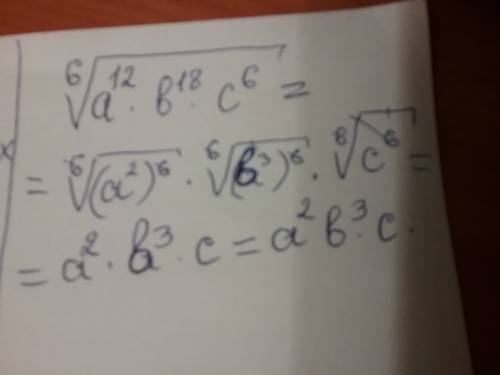 ⁶√(a¹² · b¹⁸ · c⁶) =
= ⁶√((a²)⁶) · ⁶√((b³)⁶) · ⁶√(c⁶) =
= a² · b³ · c = a² b³ · c .